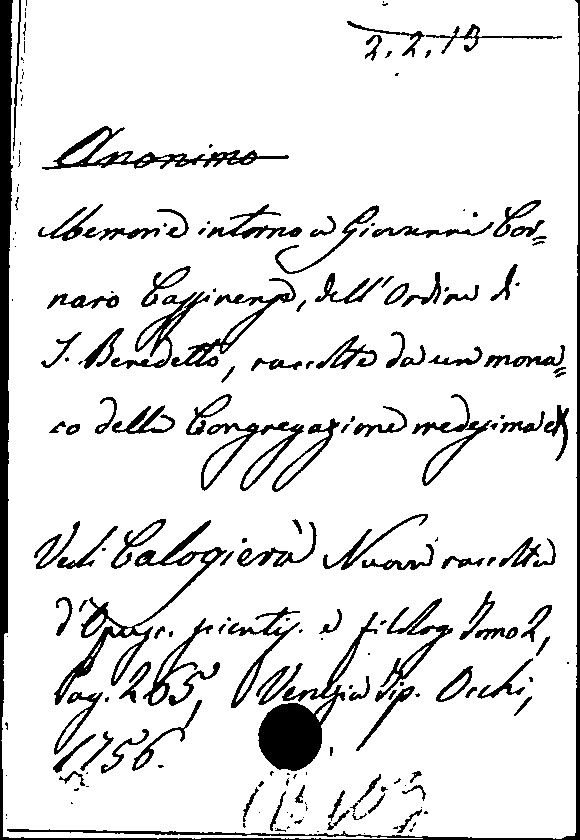 2.2.13
Anonimo
Memorie intorno a Giovanni Cor=
naro Cassinense, dell'Ordine di
S. Benedetto, raccolte da un mona=
co della Congregazione medesima
Vedi Calogierà Nuova raccolta
d'Opusc. scientif. e filolog Tomo 2,
pag. 265, Venezia Tip. Occhi,
1756.